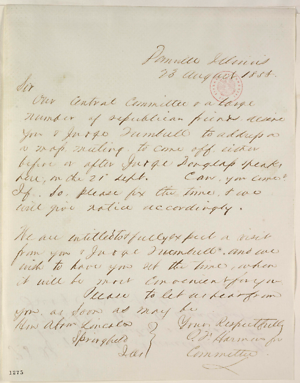 Danville Illinois
23 August 1858.
Sir
Our Central Committee & a large
number of republican friends desire
you & Judge Trumbull to address
a mass meeting to come off either
before or after Judge Douglas speaks
here, on the 21 Sept. Can you come?
If so please fix the time, & we
will give notice accordingly.
We are expect a visit
from you & Judge Trumbull, and we
wish to have you set the time, when
it will be most convenient for you
Please to let us hear from
you as soon as may be
Hon Abram Lincoln
Springfield
Ills
Yours Respectfully
Harmon
Committee
1275